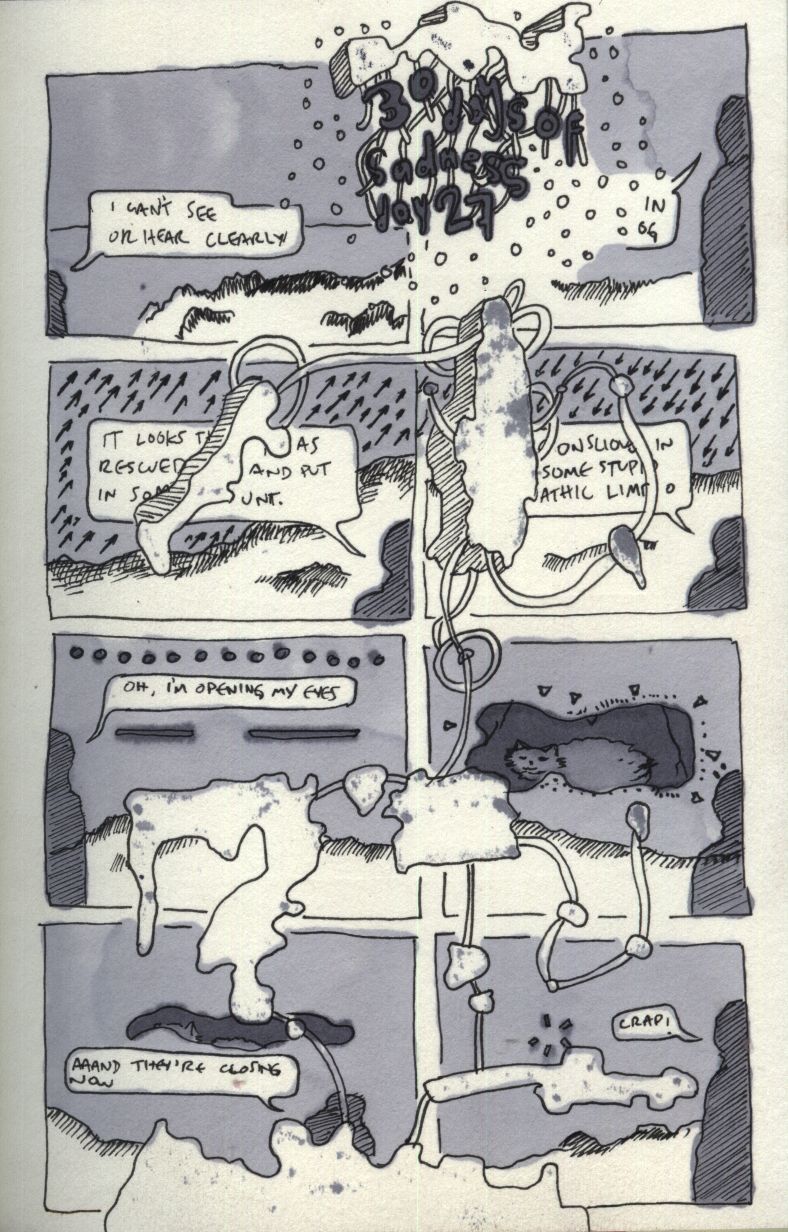 30 days of
sadness
day 27
I CAN'T SEE
OR HEAR CLEARLY
IN
OG
IT LOOKS T AS
RESCUED AND PUT
IN SOM UNT.
ONSLOW IN
SOME STUPID
ATHIC LIMBO
OH, I'M OPENING MY EYES
AAAND THEY'RE CLOSING
NOW
CRAP!